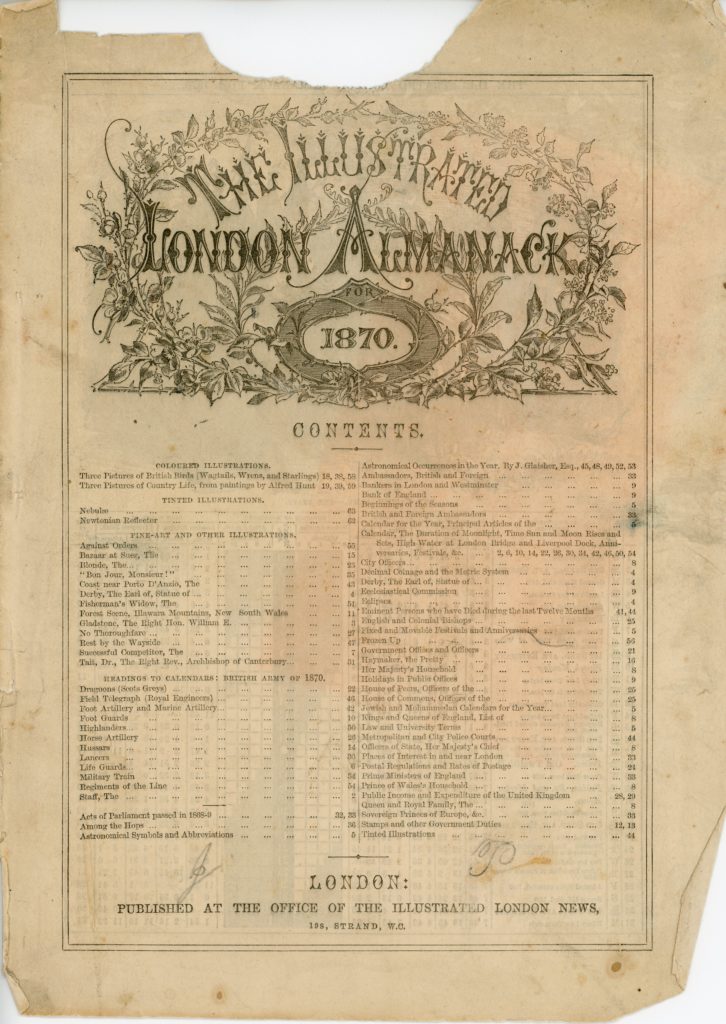 THE ILLUSTRATED
LONDON ALMANACK
FOR
1870.
CONTENTS.
COLOURED ILLUSTRATIONS.
Three Pictures of British Birds (Wagtails, Wrens, and Starlings) 18, 38, 58
Three Pictures of Country Life, from paintings by Alfred Hunt 19, 39, 59
TINTED ILLUSTRATIONS.
Nebulæ ... 63
Newtonian Reflector ... 62
FINE-ART AND OTHER ILLUSTRATIONS.
Against Orders ... 55
Bazaar at Suez, The ... 15
Blonde, The ... 23
"Bon Jour, Monsieur!" ... 35
Coast near Porto D'Anzio, The ... 43
Derby, The Earl of, Statue of ...
Fisherman's Widow, The ... 51
Forest Scene, Illawara Mountains, New South Wales ... 11
Gladstone, The Right Hon. William E. ... 3
No Thoroughfare ... 27
Rest by the Wayside ... 47
Successful Competitor, The ... 7
Tait, Dr., The Right Rev., Archbishop of Canterbury ... 31
HEADINGS TO CALENDARS: BRITISH ARMY OF 1870.
Dragoons (Scots Greys) ... 22
Field Telegraph (Royal Engineers) ... 46
Foot Artillery and Marine Artillery ... 42
Foot Guards ... 10
Highlanders ... 50
Horse Artillery ... 26
Hussars ... 14
Lancers ... 30
Life Guards ... 6
Military Train ... 34
Regiments of the Line ... 54
Staff, The ... 2
Acts of Parliament passed in 1868-9 ... 32, 33
Among the Hops ... 36
Astronomical Symbols and Abbreviations ... 5
Astronomical Occurrences in the Year. By J. Glaisher, Esq., 45, 48, 49, 52, 53
Ambassadors, British and Foreign ... 33
Bankers in London and Westminster ... 9
Bank of England ... 9
Beginnings of the Seasons ... 5
British and Foreign Ambassadors ... 33
Calendar for the Year, Principal Articles of the ... 5
Calendar, The Duration of Moonlight, Time Sun and Moon Rises and
Sets, High Water at London Bridge and Liverpool Dock, Anni-
versaries, Festivals, &c. ... 2, 6, 10, 14, 22, 26, 30, 34, 42, 46, 50, 54
City Officers ... 8
Decimal Coinage and the Metric System ... 4
Derby, The Earl of, Statue of ... 4
Ecclesiastical Commission ... 9
Eclipses ... 4
Eminent Persons who have Died during the last Twelve Months ... 41, 44
English and Colonial Bishops ... 25
Fixed and Movable Festivals and Anniversaries ... 5
Frozen Up ... 56
Government Offices and Officers ... 21
Haymaker, the Pretty ... 16
Her Majesty's Household ... 8
Holidays in Public Offices ... 9
House of Peers, Officers of the ... 25
House of Commons, Officers of the ... 25
Jewish and Mohammedan Calendars for the Year ... 5
Kings and Queens of England, List of ... 8
Law and University Terms ... 5
Metropolitan and City Police Courts ... 44
Officers of State, Her Majesty's Chief ... 8
Places of Interest in and near London ... 33
Postal Regulations and Rates of Postage ... 24
Prime Ministers of England ... 33
Prince of Wales's Household ... 8
Public Income and Expenditure of the United Kingdom ... 28, 29
Queen and Royal Family, The ... 8
Sovereign Princes of Europe, &c. ... 33
Stamps and other Government Duties ... 12, 13
Tinted Illustrations ... 44
LONDON:
PUBLISHED AT THE OFFICE OF THE ILLUSTRATED LONDON NEWS,
198, STRAND, W.C.